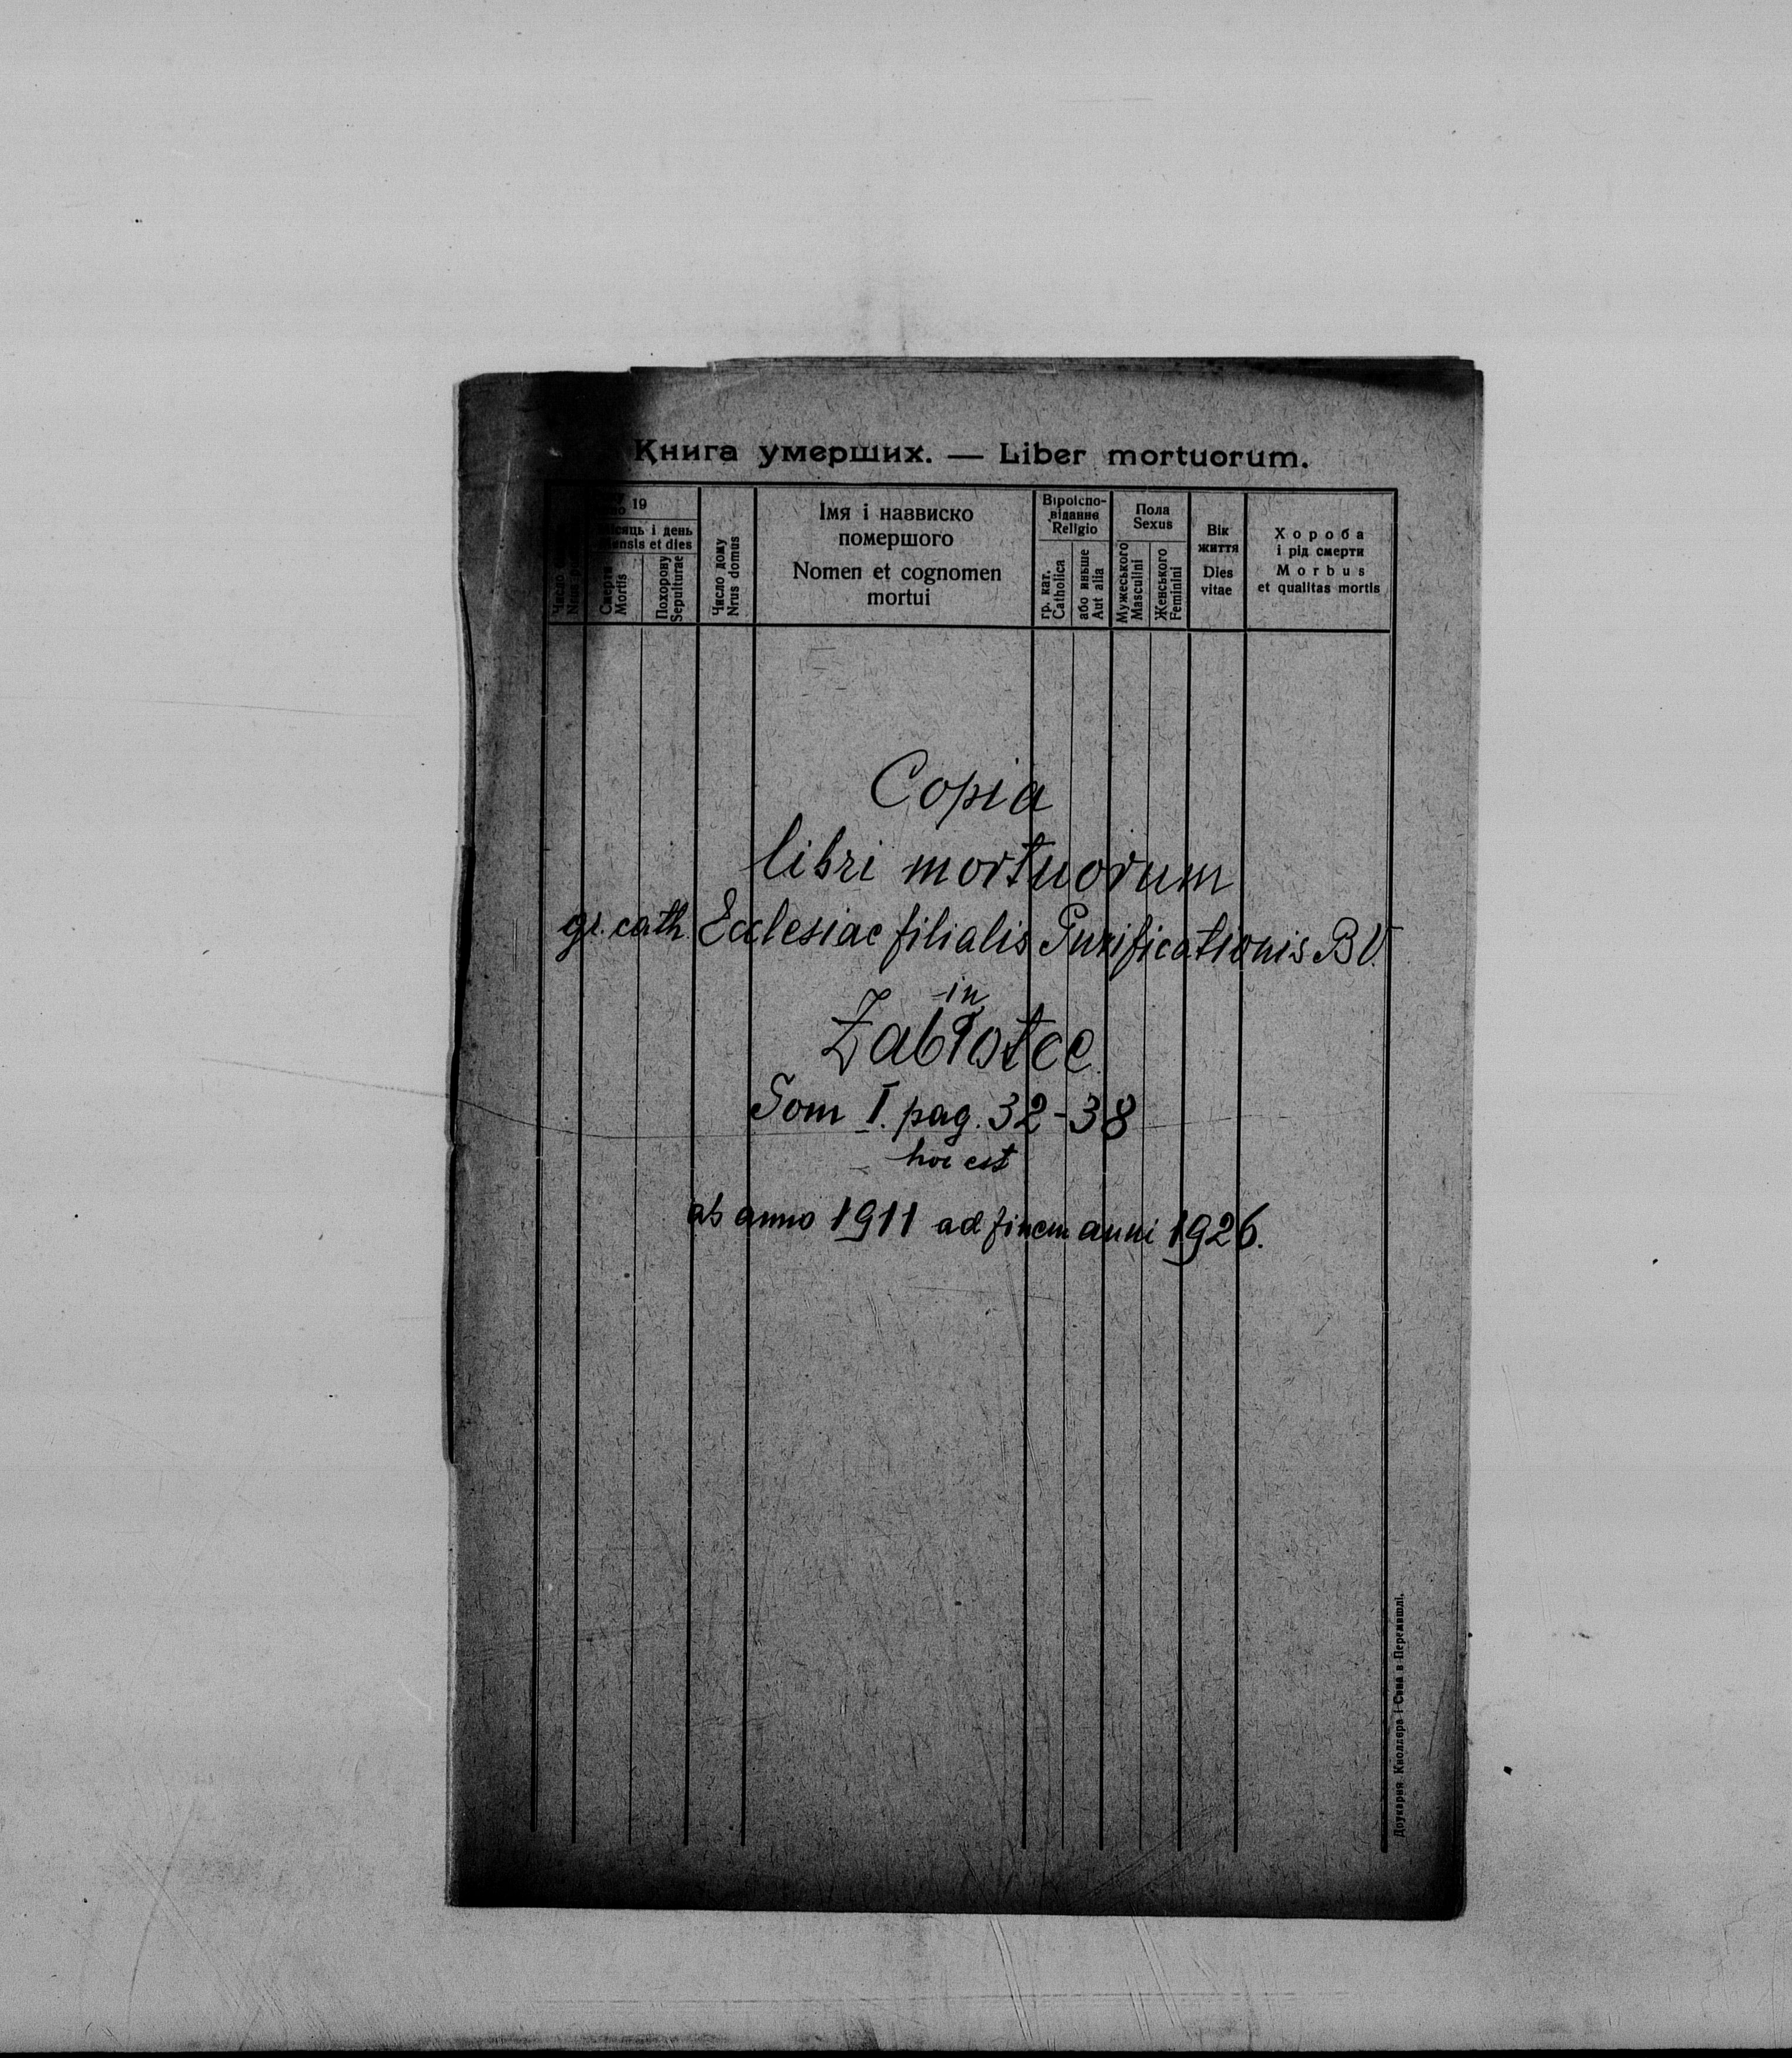 Книга умерших. — Liber mortuorum.
19
Місяць і день
Mensis et dies
Число
Смерти
Mortis
Похорону
Sepulturae
Число дому
Nrus domus
Імя і назвиско
помершого
Nomen et cognomen
mortui
Віроіспо-
відание
Religio
гр. кат.
Catholica
або иньше
Aut alia
Пола
Sexus
Мужеського
Masculini
Женського
Feminini
Вік
життя
Dies
vitae
Хороба
і рід смерти
Morbus
et qualitas mortis
Copia
libri mortuorum
gr. cath. Ecclesiae filialis Purificationis B V.
in
Zabłotce
Tom I. pag. 32-38
hoc est
ab anno 1911 ad finem anni 1926.
Друкарня Кноллера і Сина в Перемишлі.